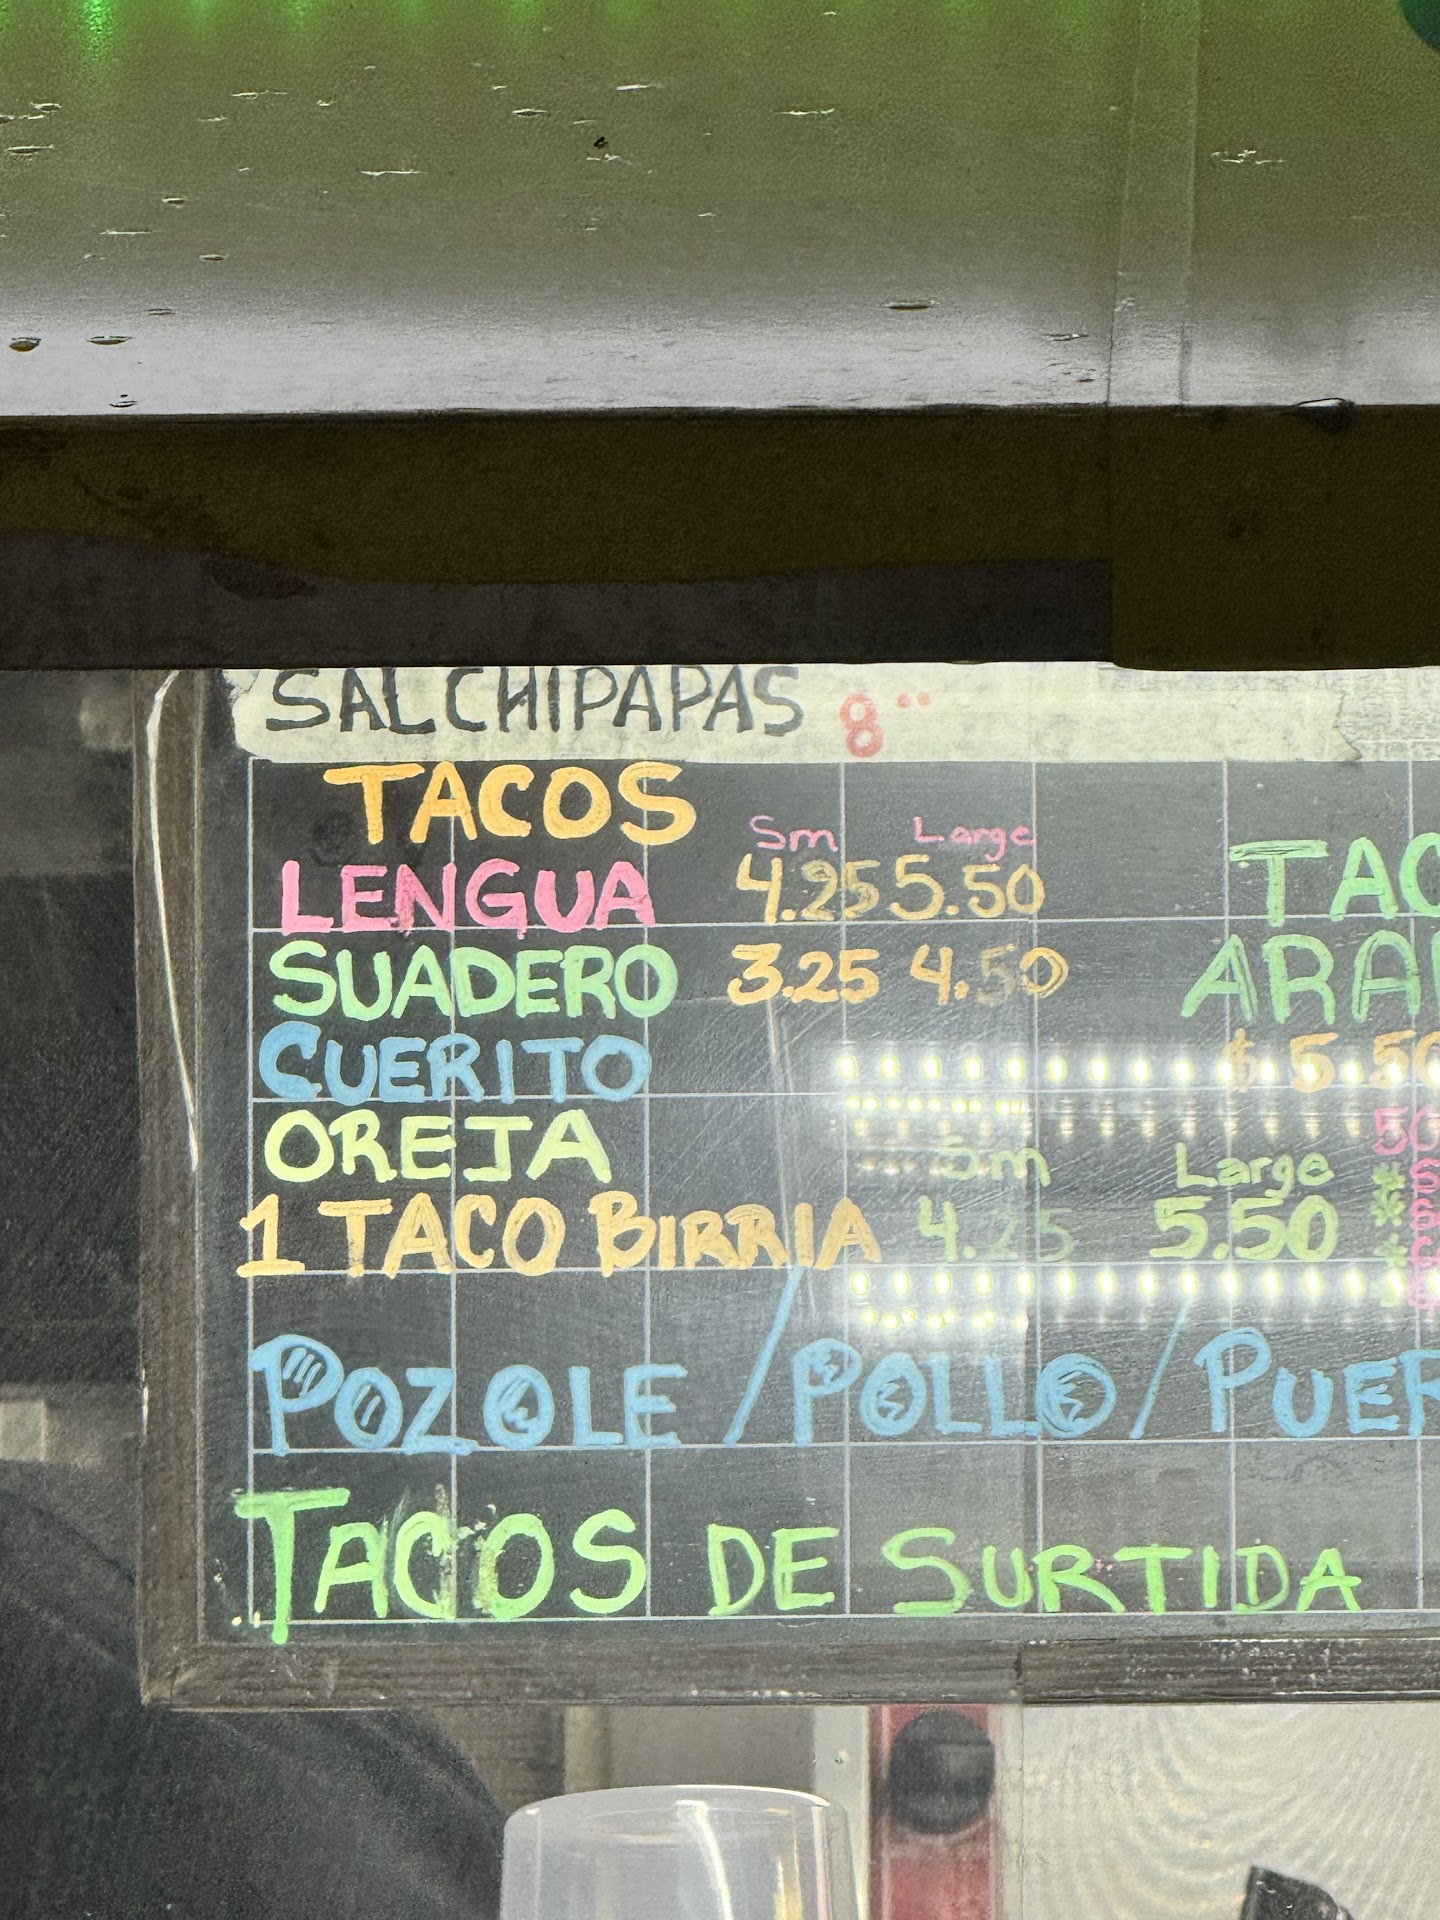 SALCHIPAPAS 8°°
TACOS
Sm Large
LENGUA 4.25 5.50
SUADERO 3.25 4.50
CUERITO
OREJA
Sm Large
1 TACO BIRRIA 4.25 5.50
POZOLE / POLLO / PUER
TACOS DE SURTIDA
TAC
ARA
$5.50
50